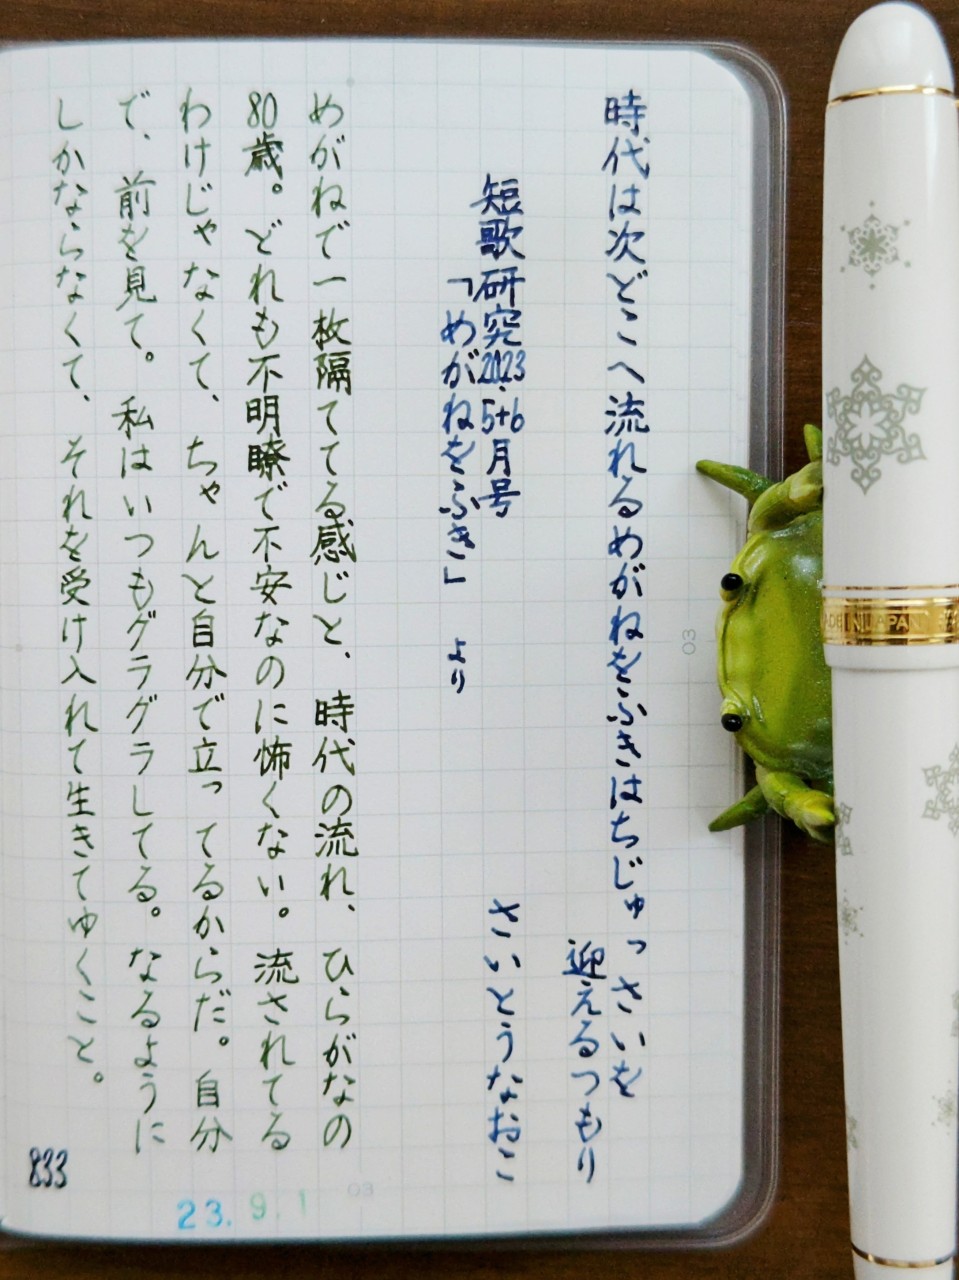 時代は次どこへ流れるめがねをふきはちじゅっさいを
迎えるつもり
さいとうなおこ
短歌研究2023.5+6月号
「めがねをふき」 より
めがねで一枚隔ててる感じと、時代の流れ、ひらがなの
80歳。どれも不明瞭で不安なのに怖くない。流されてる
わけじゃなくて、ちゃんと自分で立ってるからだ。自分
で、前を見て。私はいつもグラグラしてる。なるように
しかならなくて、それを受け入れて生きてゆくこと。
833
23.9.1
03
03
MADE IN JAPAN